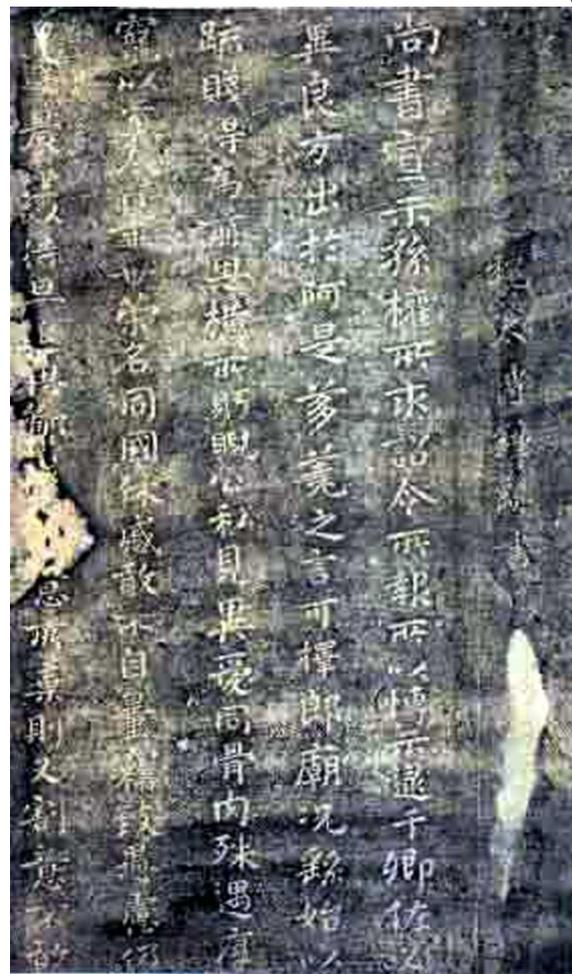 太傅鍾繇書
尚書宣示孫權所求詔令所報所以博示逮于卿佐必
冀良方出於阿是芻蕘之言可擇郎廟況繇始以
疏賤得為前恩橫所盱睨公私見異愛同骨肉殊遇厚
寵以至今日再世榮名同國休慼敢不自量竊致愚慮仍
日達晨坐以待旦退思鄙 意所棄則又割意不敢